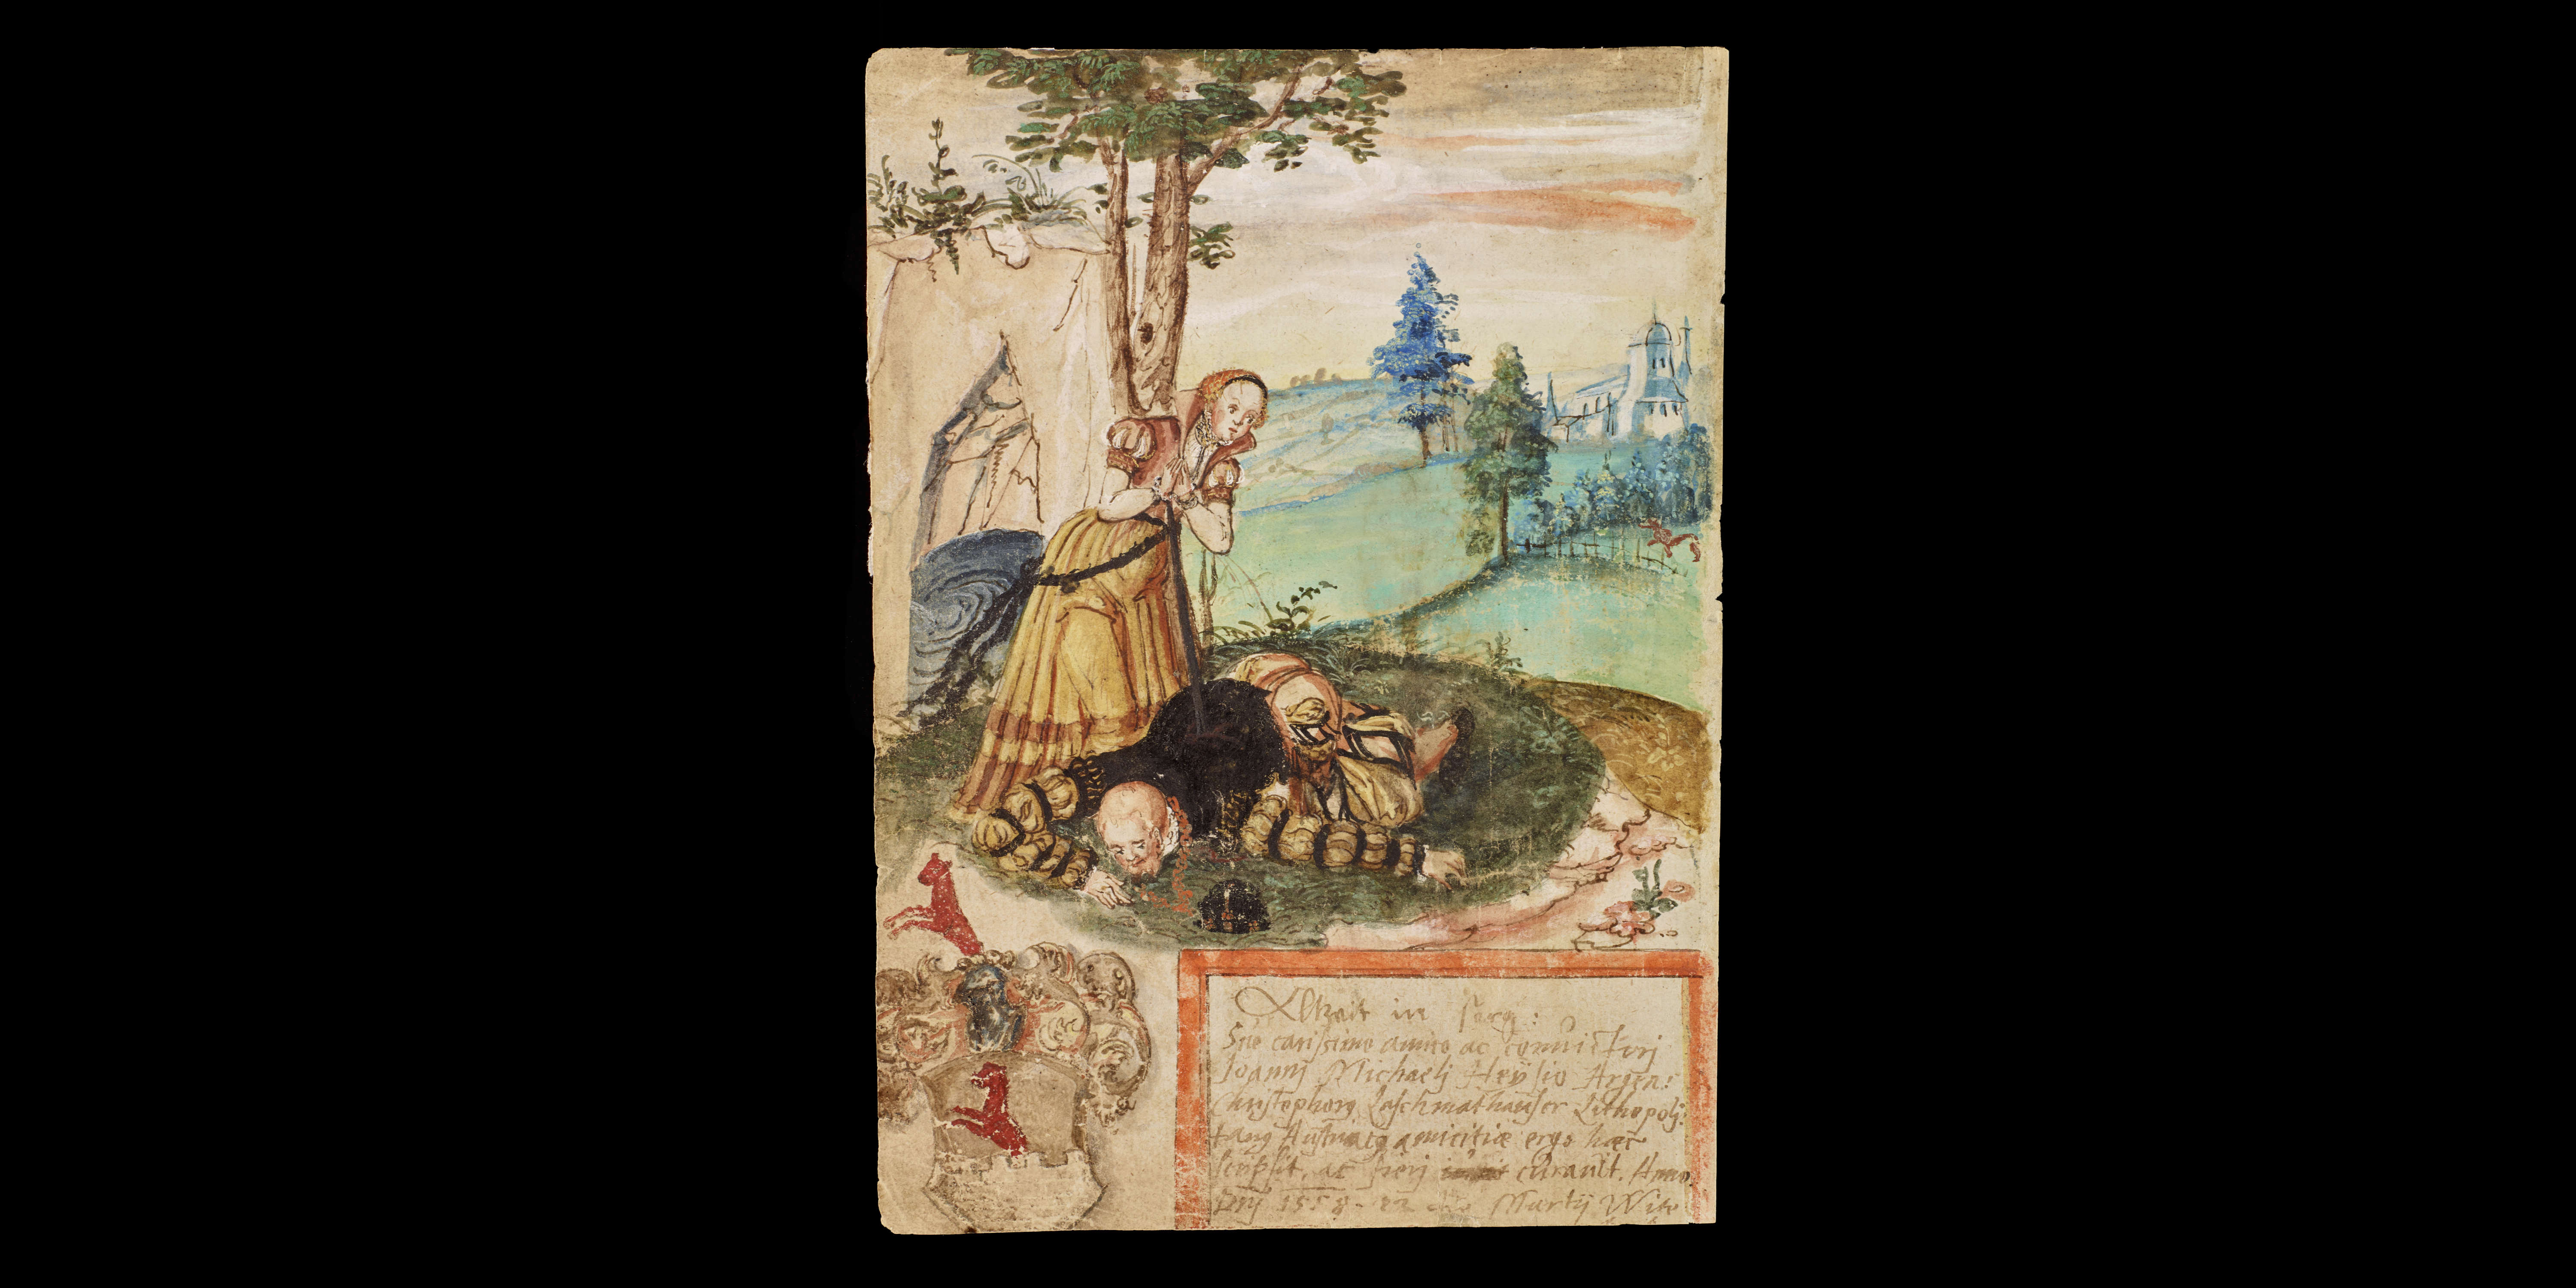 Alzeit in sorg:
Suo carissimo amico ac convictorj
Joannj Michaelj Heÿsio Argen:
Christophorg Laschmathauser Lithopolj:
tang Austriacg amicitiæ ergo hæc
scripsit, ac fierj curauit. Anno.
Dnj 1558. 22 Martij Wite